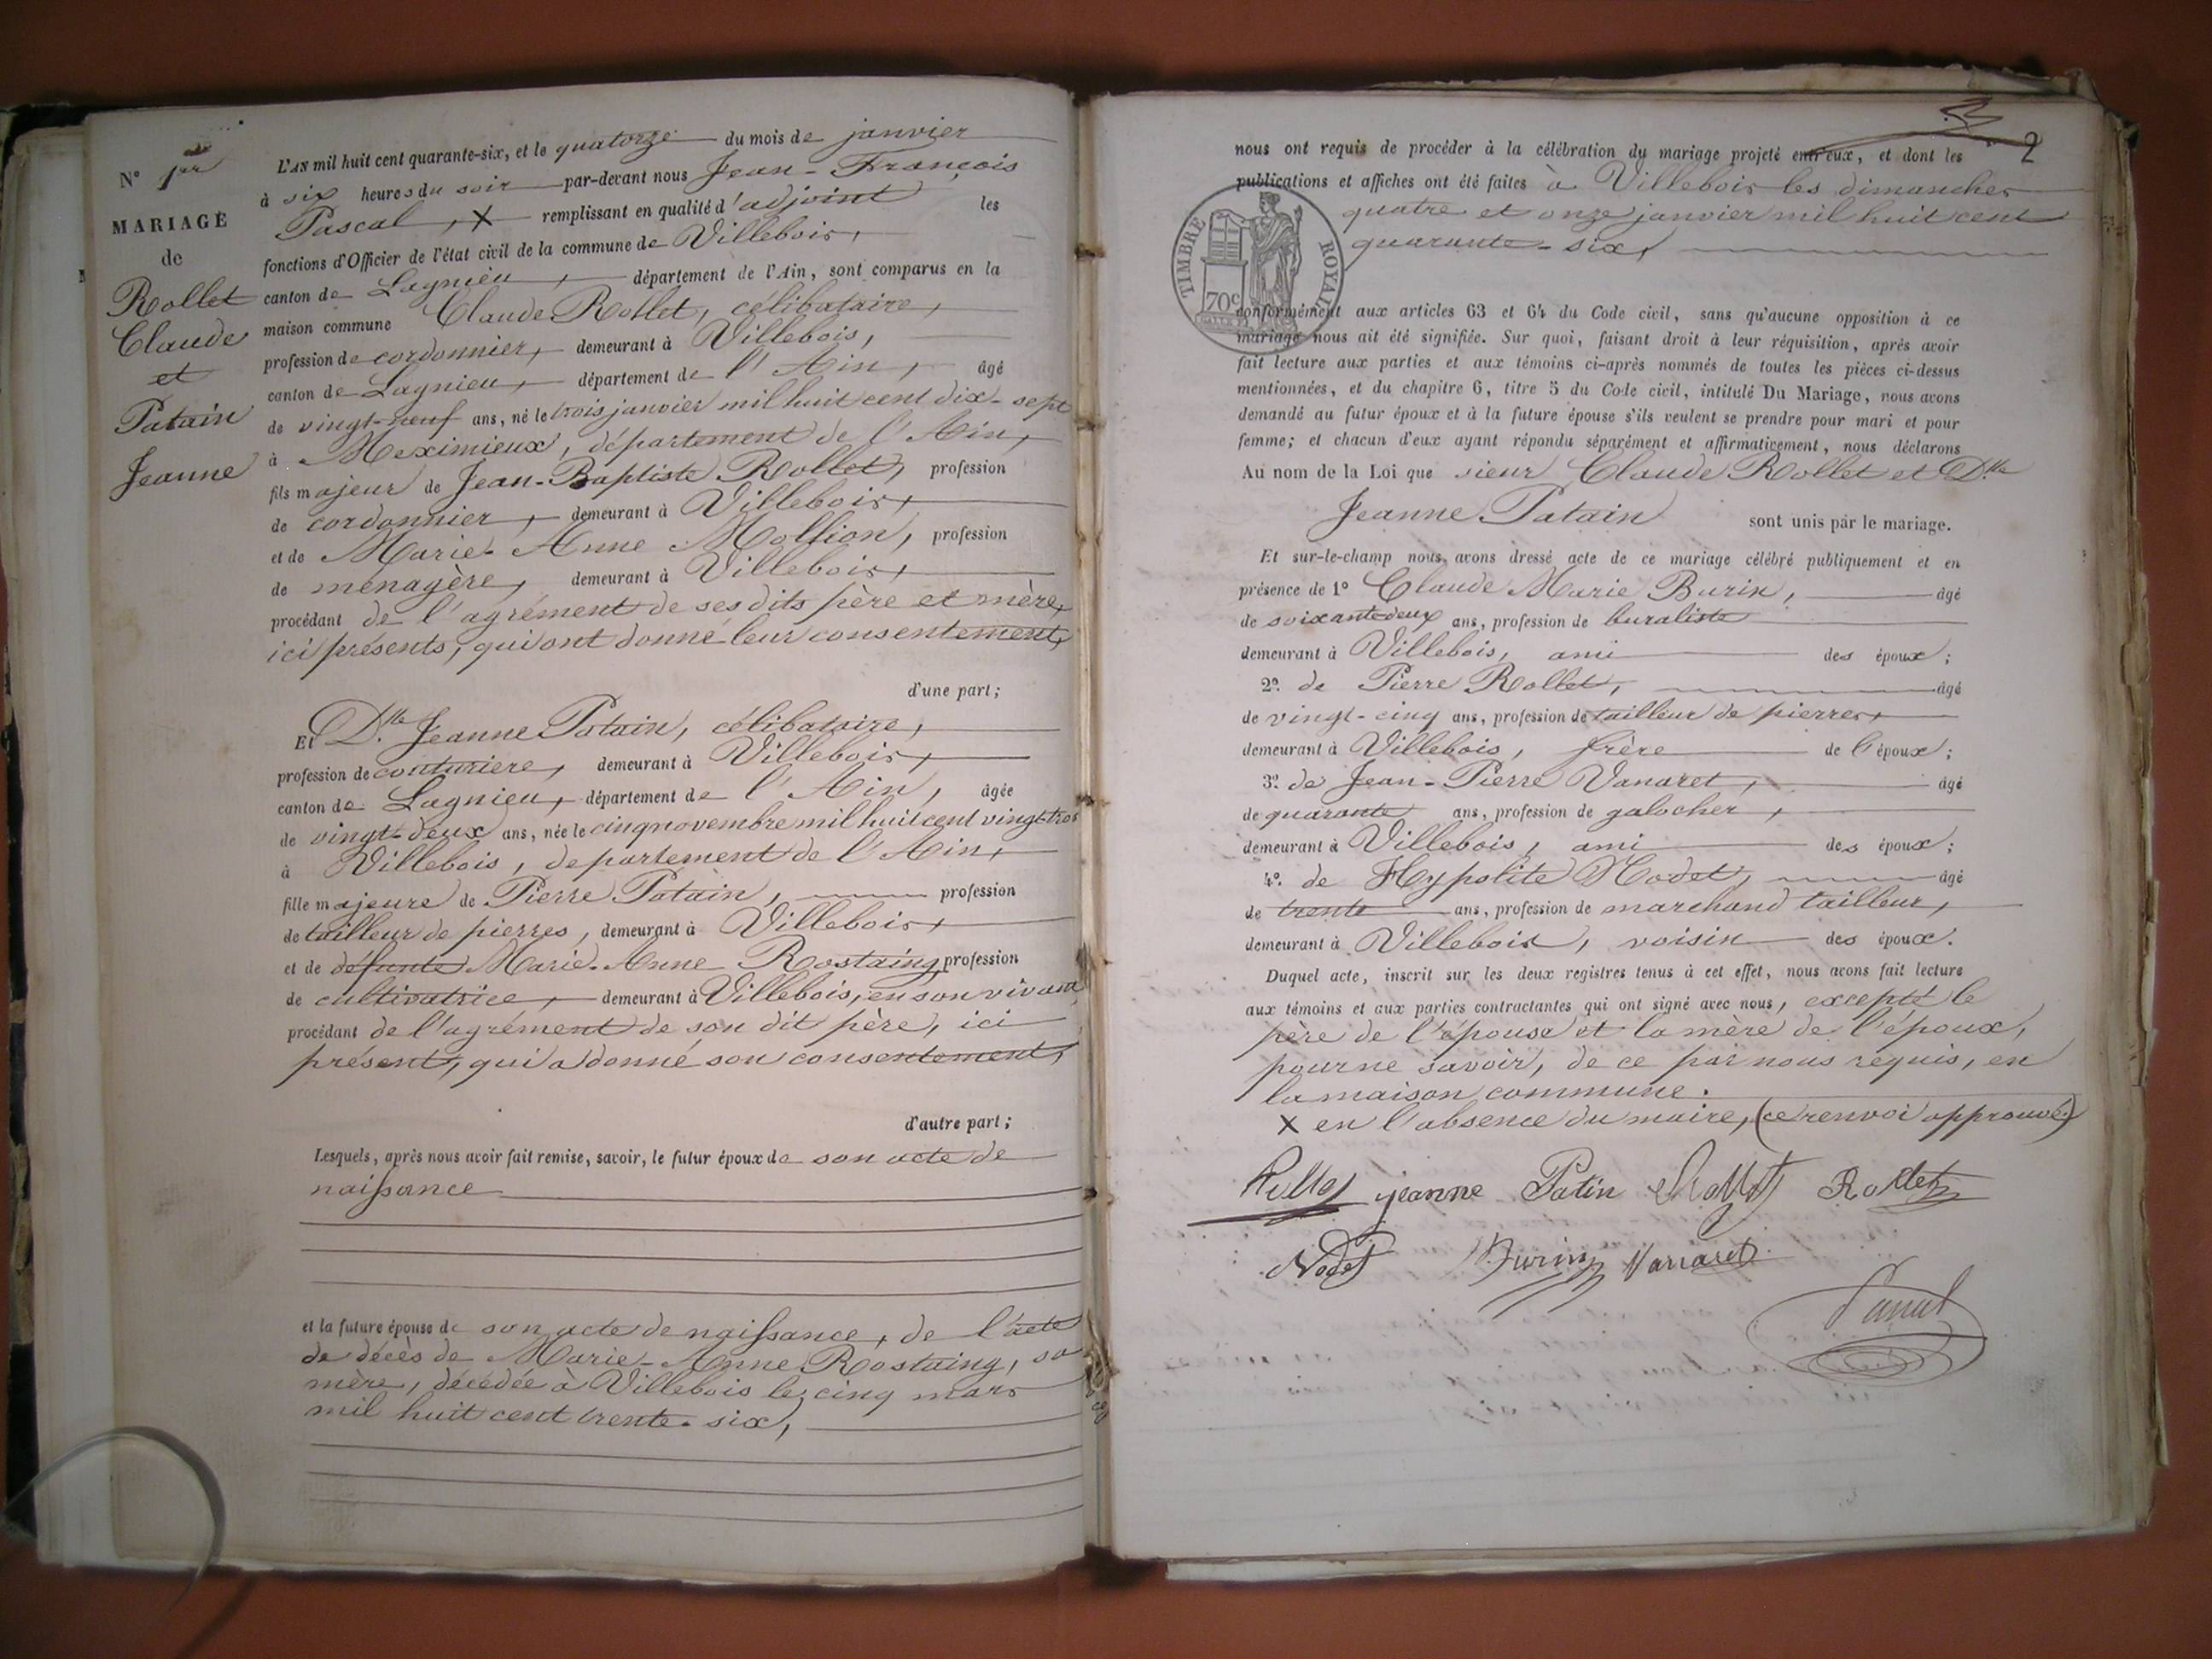 N° 1er
MARIAGE
de
Rollet
Claude
et
Patain
Jeanne
L'AN mil huit cent quarante-six, et le quatorze du mois de janvier
à six heures du soir par-devant nous Jean-François
Pascal, X remplissant en qualité d'adjoint les
fonctions d'Officier de l'état civil de la commune de Villebois,
canton de Lagnieu, département de l'Ain, sont comparus en la
maison commune Claude Rollet, célibataire,
profession de cordonnier, demeurant à Villebois,
canton de Lagnieu, département de l'Ain, âgé
de vingt-neuf ans, né le trois janvier mil huit cent dix-sept
à Meximieux, département de l'Ain,
fils majeur de Jean-Baptiste Rollet, profession
de cordonnier, demeurant à Villebois,
et de Marie-Anne Mollion, profession
de ménagère, demeurant à Villebois,
procédant de l'agrément de ses dits père et mère,
ici présents, qui ont donné leur consentement,
d'une part;
Et Dlle Jeanne Patain, célibataire,
profession de couturiere, demeurant à Villebois,
canton de Lagnieu, département de l'Ain, âgée
de vingt-deux ans, née le cinq novembre mil huit cent vingt-trois
à Villebois, département de l'Ain,
fille majeure de Pierre Patain, profession
de tailleur de pierres, demeurant à Villebois,
et de défunte Marie-Anne Rostaing, profession
de cultivatrice, demeurant à Villebois, en son vivant
procédant de l'agrément de son dit père, ici
présent, qui a donné son consentement,
d'autre part;
Lesquels, après nous avoir fait remise, savoir, le futur époux de son acte de
naissance
et la future épouse de son acte de naissance, de l'acte
de décès de Marie-Anne Rostaing, sa
mère, décédée à Villebois le cinq mars
mil huit cent trente-six,
2
nous ont requis de procéder à la célébration du mariage projeté entr'eux, et dont les
publications et affiches ont été faites à Villebois les dimanches
quatre et onze janvier mil huit cent
quarante-six,
TIMBRE ROYAL
70c
conformément aux articles 63 et 64 du Code civil, sans qu'aucune opposition à ce
mariage nous ait été signifiée. Sur quoi, faisant droit à leur réquisition, après avoir
fait lecture aux parties et aux témoins ci-après nommés de toutes les pièces ci-dessus
mentionnées, et du chapitre 6, titre 5 du Code civil, intitulé Du Mariage, nous avons
demandé au futur époux et à la future épouse s'ils veulent se prendre pour mari et pour
femme; et chacun d'eux ayant répondu séparément et affirmativement, nous déclarons
Au nom de la Loi que sieur Claude Rollet et Dlle
Jeanne Patain sont unis par le mariage.
Et sur-le-champ nous avons dressé acte de ce mariage célébré publiquement et en
présence de 1° Claude Marie Burin, âgé
de soixante deux ans, profession de buraliste
demeurant à Villebois, ami des époux;
2° de Pierre Rollet, âgé
de vingt-cinq ans, profession de tailleur de pierres,
demeurant à Villebois, frère de l'époux;
3° de Jean-Pierre Vanaret, âgé
de quarante ans, profession de galocher,
demeurant à Villebois, ami des époux;
4° de Hypolite Nodet, âgé
de trente ans, profession de marchand tailleur,
demeurant à Villebois, voisin des époux.
Duquel acte, inscrit sur les deux registres tenus à cet effet, nous avons fait lecture
aux témoins et aux parties contractantes qui ont signé avec nous, excepté le
père de l'épouse et la mère de l'époux,
pour ne savoir, de ce par nous requis, en
la maison commune.
X en l'absence du maire, (ce renvoi approuvé.)
Rollet jeanne Patin Rollet Rollet
Nodet Burin Vanaret
Pascal